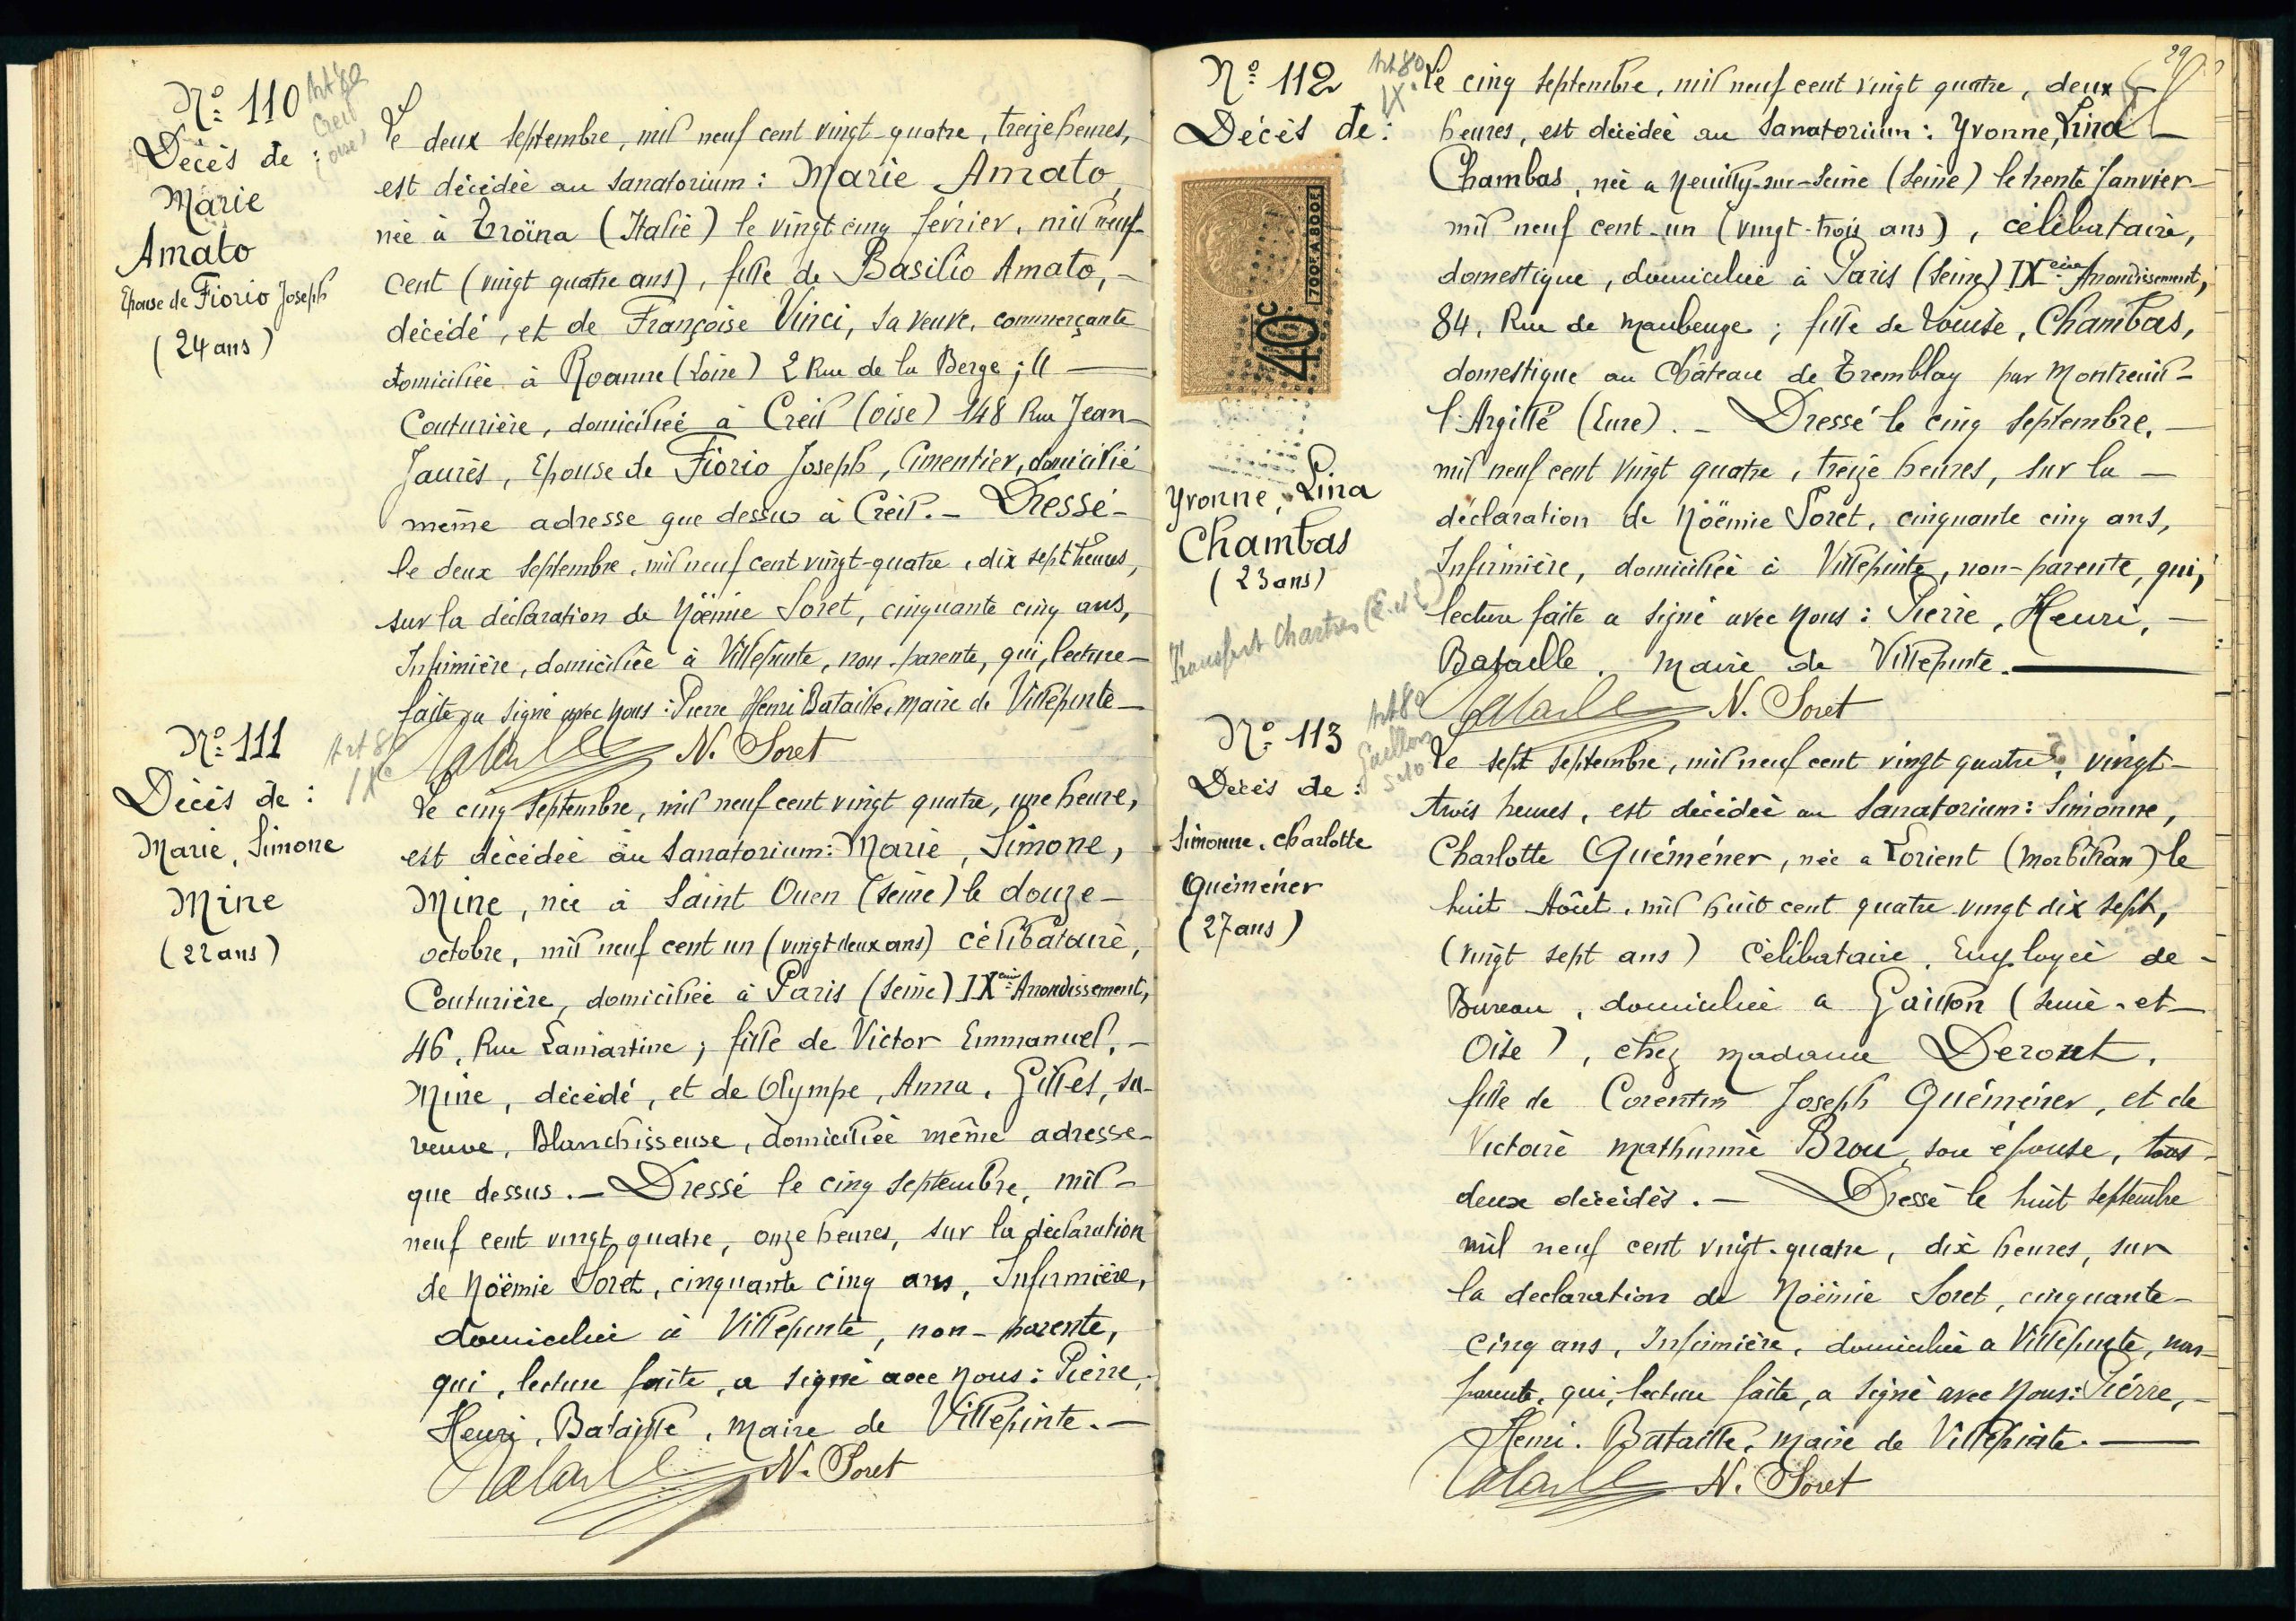 N° 110
Art 80
Creil
(oise)
Décès de :
Marie
Amato
Epouse de Fiorio Joseph
(24 ans)
Le deux Septembre, mil neuf cent vingt-quatre, treize heures,
est décédée au Sanatorium : Marie Amato,
née à Troïna (Italie) le vingt cinq février, mil neuf
cent (vingt quatre ans), fille de Basilio Amato, —
décédé, et de Françoise Vinci, sa veuve, commerçante
domiciliée à Roanne (Loire) 2 Rue de la Berge ; —
Couturière, domiciliée à Creil (oise) 148 Rue Jean-
Jaurès, Epouse de Fiorio Joseph, Cimentier, domicilié
même adresse que dessus à Creil. — Dressé —
le deux Septembre, mil neuf cent vingt-quatre, dix sept heures,
sur la déclaration de Noëmie Soret, cinquante cinq ans,
Infirmière, domiciliée à Villepinte, non-parente, qui, lecture —
faite, a signé avec Nous : Pierre Henri Bataille, maire de Villepinte —
Bataille N. Soret
N° 111
Art 80
IXe
Décès de :
Marie, Simone
Mine
(22 ans)
Le cinq Septembre, mil neuf cent vingt quatre, une heure,
est décédée au Sanatorium : Marie, Simone,
Mine, née à Saint Ouen (Seine) le douze —
octobre, mil neuf cent un (vingt deux ans) célibataire,
Couturière, domiciliée à Paris (Seine) IXème Arrondissement,
46, Rue Lamartine ; fille de Victor Emmanuel, —
Mine, décédé, et de Olympe, Anna, Gilles, sa —
veuve, Blanchisseuse, domiciliée même adresse —
que dessus. — Dressé le cinq Septembre, mil —
neuf cent vingt quatre, onze heures, sur la déclaration
de Noëmie Soret, cinquante cinq ans, Infirmière,
domiciliée à Villepinte, non-parente,
qui, lecture faite, a signé avec Nous : Pierre,
Henri, Bataille, Maire de Villepinte. —
Bataille N. Soret
29
N° 112
Art 80
IX
Décès de :
40c
700F.A 800F.
Yvonne, Lina
Chambas
(23 ans)
Transfert Chartres (E. et L)
Le cinq Septembre, mil neuf cent vingt quatre, deux —
heures, est décédée au Sanatorium : Yvonne, Lina —
Chambas, née à Neuilly-sur-Seine (Seine) le trente Janvier —
mil neuf cent-un (vingt-trois ans), célibataire,
domestique, domiciliée à Paris (Seine) IXème Arrondissement,
84, Rue de Maubeuge ; fille de Louise, Chambas,
domestique au Château de Tremblay par Montreuil —
l'Argillé (Eure). — Dressé le cinq Septembre, —
mil neuf cent vingt quatre, treize heures, sur la —
déclaration de Noëmie Soret, cinquante cinq ans,
Infirmière, domiciliée à Villepinte, non-parente, qui,
lecture faite a signé avec Nous : Pierre, Henri, —
Bataille, Maire de Villepinte. —
Bataille N. Soret
N° 113
Art 80
Gaillon
S et O
Décès de :
Simonne, Charlotte
Quéméner
(27 ans)
Le sept Septembre, mil neuf cent vingt quatre, vingt —
trois heures, est décédée au Sanatorium : Simonne,
Charlotte Quéméner, née à Lorient (Morbihan) le
huit Août, mil huit cent quatre vingt dix sept,
(vingt sept ans) Célibataire, Employée de —
Bureau, domiciliée à Gaillon (Seine-et —
Oise), chez Madame Derout,
fille de Corentin Joseph Quéméner, et de
Victoire Mathurine Brou, son épouse, tous —
deux décédés. — Dressé le huit Septembre
mil neuf cent vingt-quatre, dix heures, sur
la déclaration de Noëmie Soret, cinquante —
cinq ans, Infirmière, domiciliée à Villepinte, non —
parente, qui, lecture faite, a signé avec Nous : Pierre, —
Henri. Bataille, Maire de Villepinte. —
Bataille N. Soret